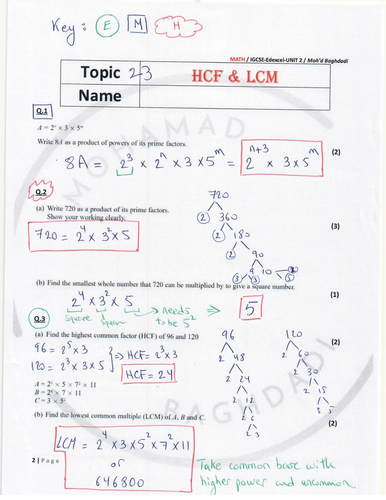 Key : E M H
MATH / IGCSE-Edexcel-UNIT 2 / Moh'd Baghdadi
Topic 23 HCF & LCM
Name
Q.1
A = 2ⁿ × 3 × 5ᵐ
Write 8A as a product of powers of its prime factors.
8A = 2³ × 2ⁿ × 3 × 5ᵐ = 2ⁿ⁺³ × 3 × 5ᵐ (2)
Q.2
(a) Write 720 as a product of its prime factors.
Show your working clearly.
(3)
720 = 2⁴ × 3² × 5
720
2 360
2 180
2 90
9 10
3 3
(b) Find the smallest whole number that 720 can be multiplied by to give a square number.
(1)
2⁴ × 3² × 5
square square needs
to be 5²
5
Q.3
(a) Find the highest common factor (HCF) of 96 and 120
(2)
96 = 2⁵ × 3
120 = 2³ × 3 × 5
⇒ HCF = 2³ × 3
HCF = 24
96
2 48
2 24
2 12
2 6
2 3
120
2 60
2 30
2 15
3 5
A = 2⁵ × 5 × 7² × 11
B = 2⁴ × 7 × 11
C = 3 × 5²
(b) Find the lowest common multiple (LCM) of A, B and C.
(2)
LCM = 2⁴ × 3 × 5² × 7² × 11
or
646800
Take common base with
higher power and uncommon.
2 | Page
MOHAMAD
BAGHDADI